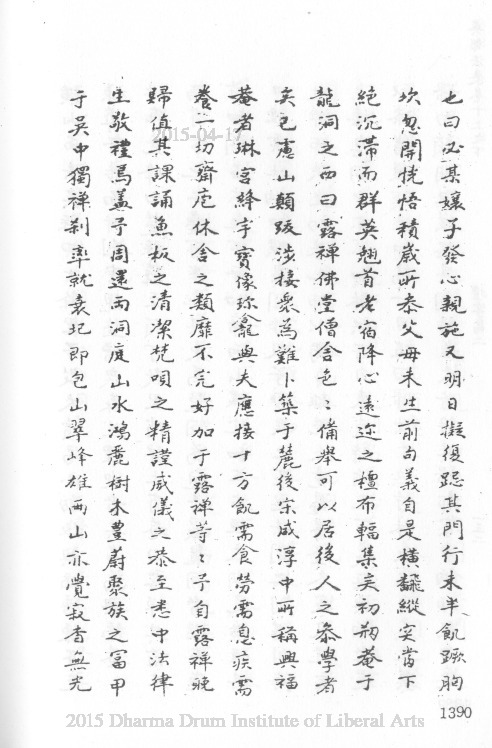 也曰必某孃子發心親施又明日擬復踵其門行未半飢蹶胸
坎忽開恍悟積歲所叅父母未生前句義自是橫翻縱突當下
絕沉滯而群英翹首老宿降心遠迩之檀布輻集矣初剏菴于
龍洞之西曰露禪佛堂僧舍色〻備舉可以居後人之叅學者
矣已慮山顛跋涉接衆為難卜築于麓後宋咸淳中所稱興福
菴者琳宮絳宇寶像珎龕與夫應接十方飢需食勞需息疾需
養一切齋庖休舍之類靡不完好加于露禪菩〻予自露禪晚
歸值其課誦魚板之清潔梵唄之精謹威儀之恭至悉中法律
生敬禮焉蓋予周還兩洞庭山水鴻麗樹木豐蔚聚族之冨甲
于吳中獨禪刹率就衰圮即包山翠峰雄兩山亦覺寂杳無光
1390
2015-04-17
2015 Dharma Drum Institute of Liberal Arts